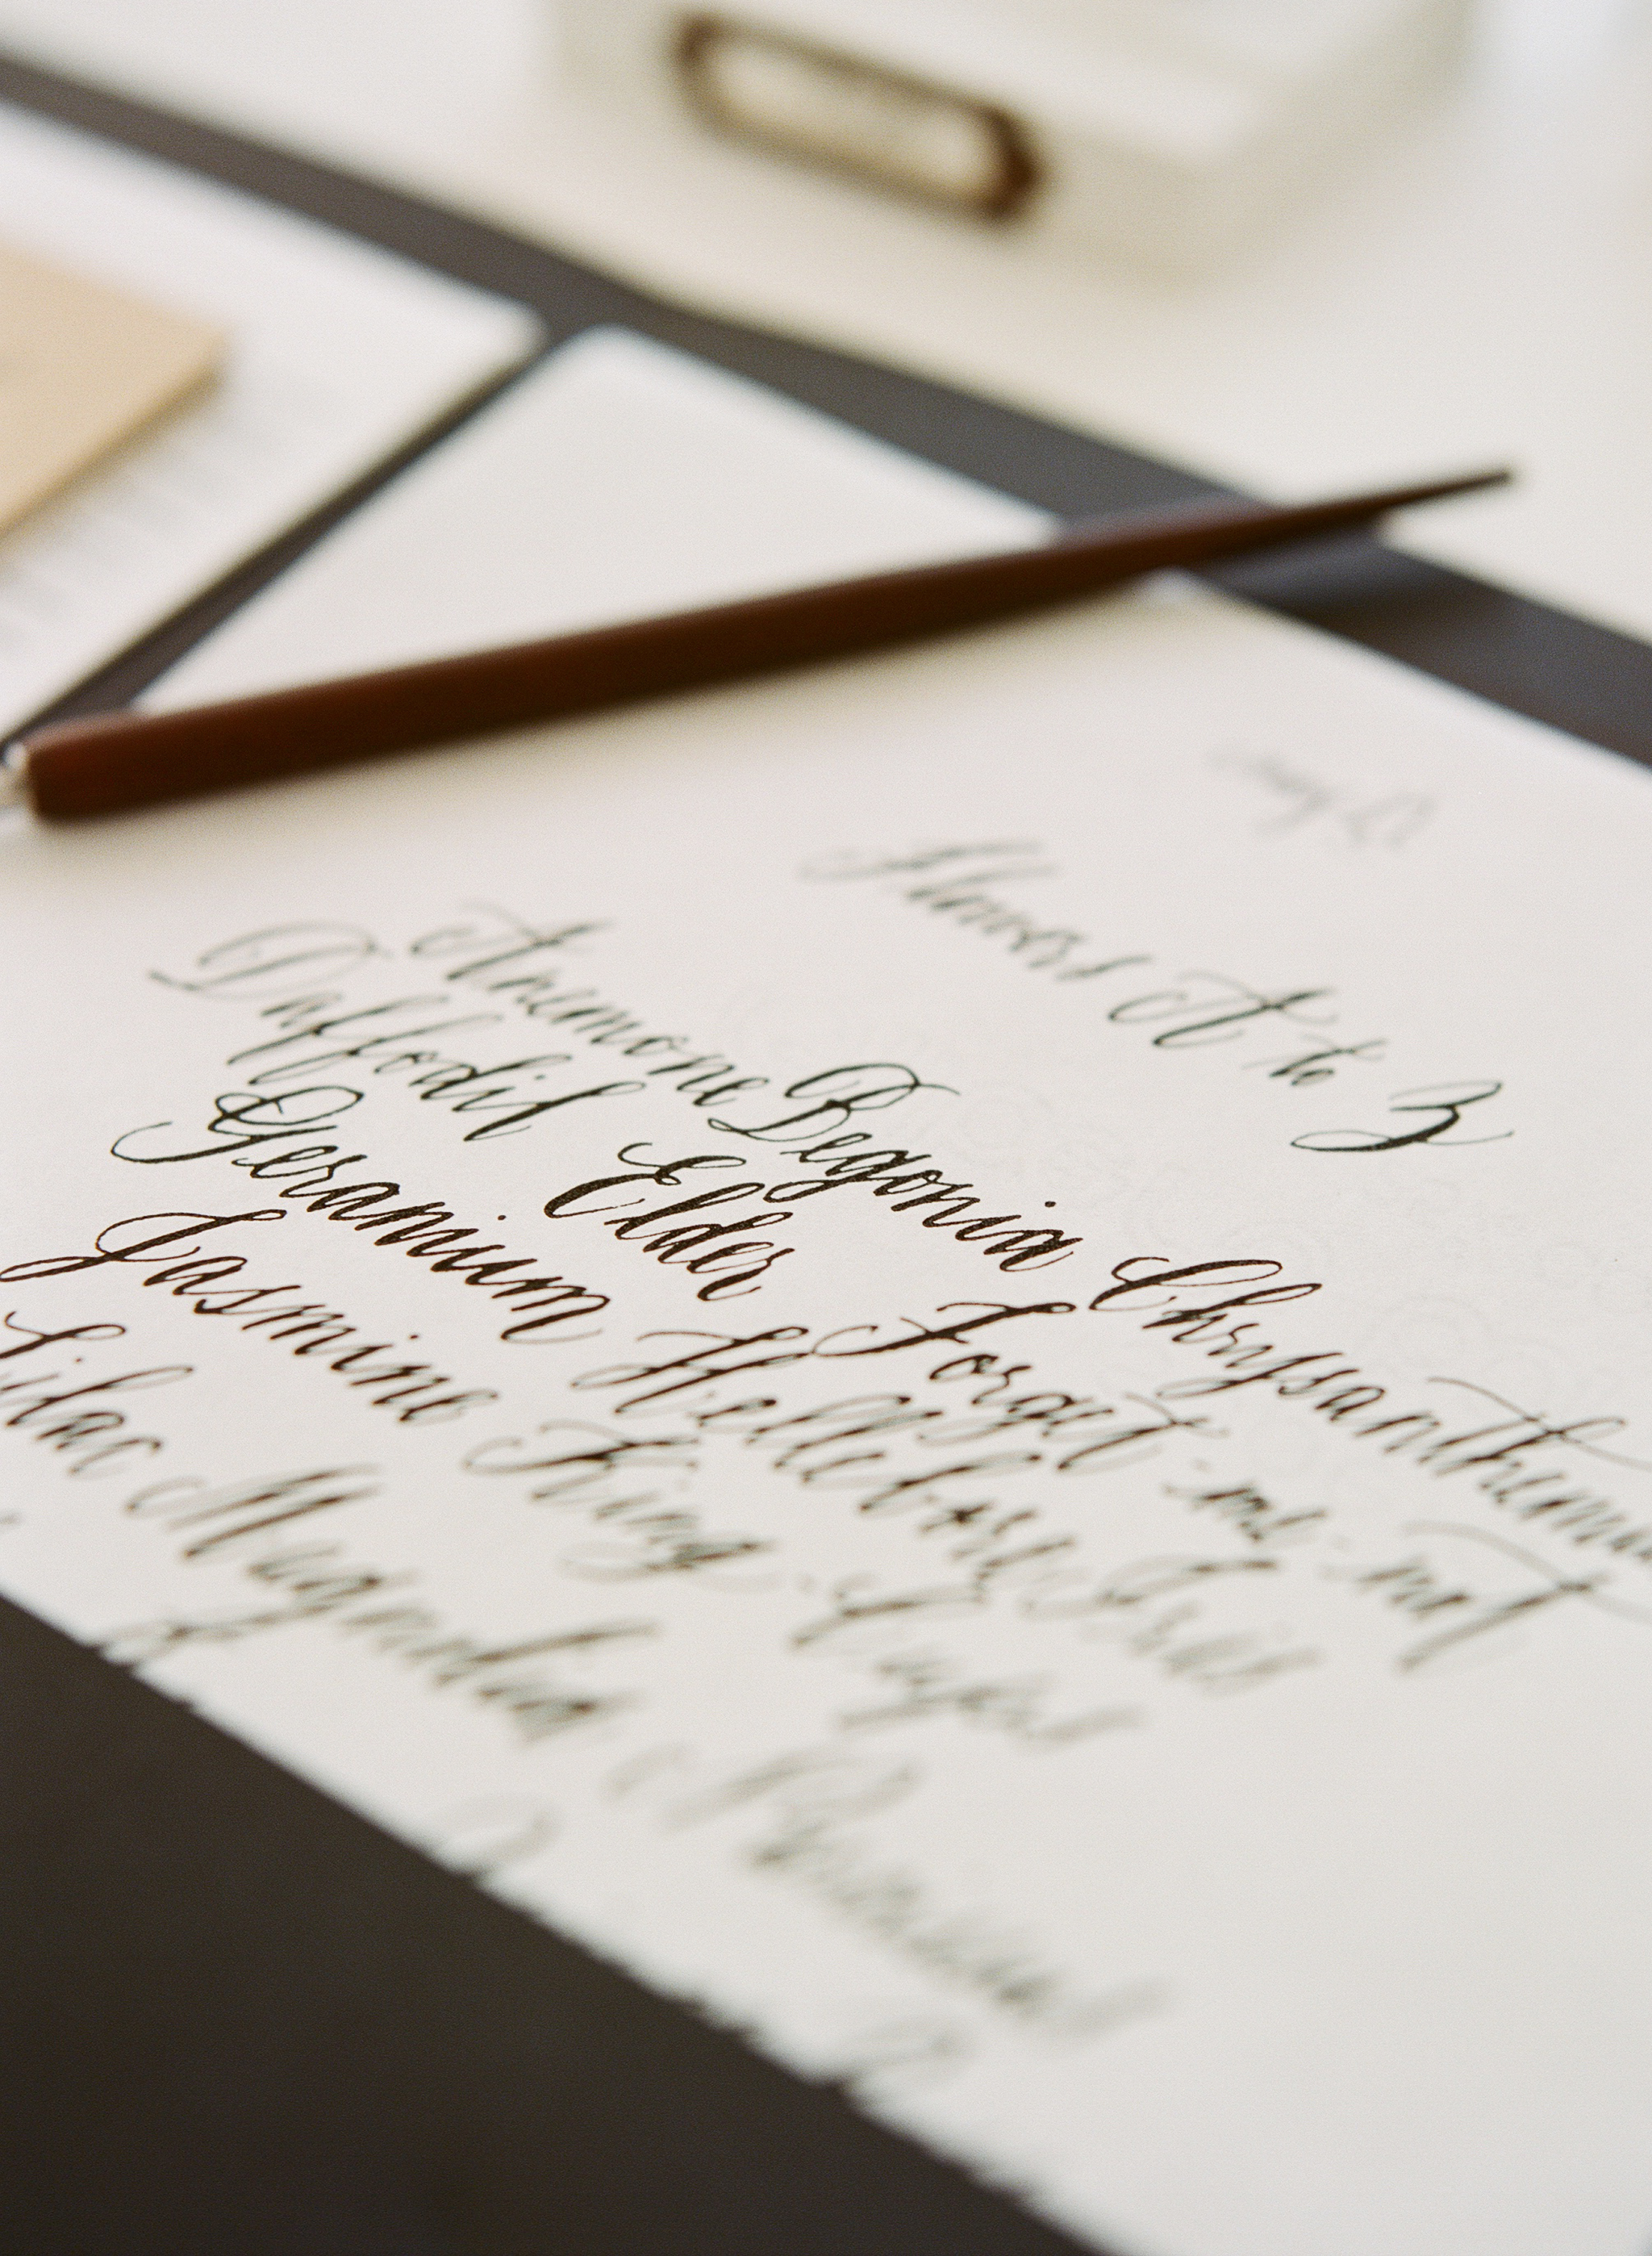 Flowers A to Z
Anemone Begonia Chrysanthemum
Daffodil Elder Forget-me-not
Geranium Hellebore Iris
Jasmine King-Cups
Lilac Magnolia Narcissus